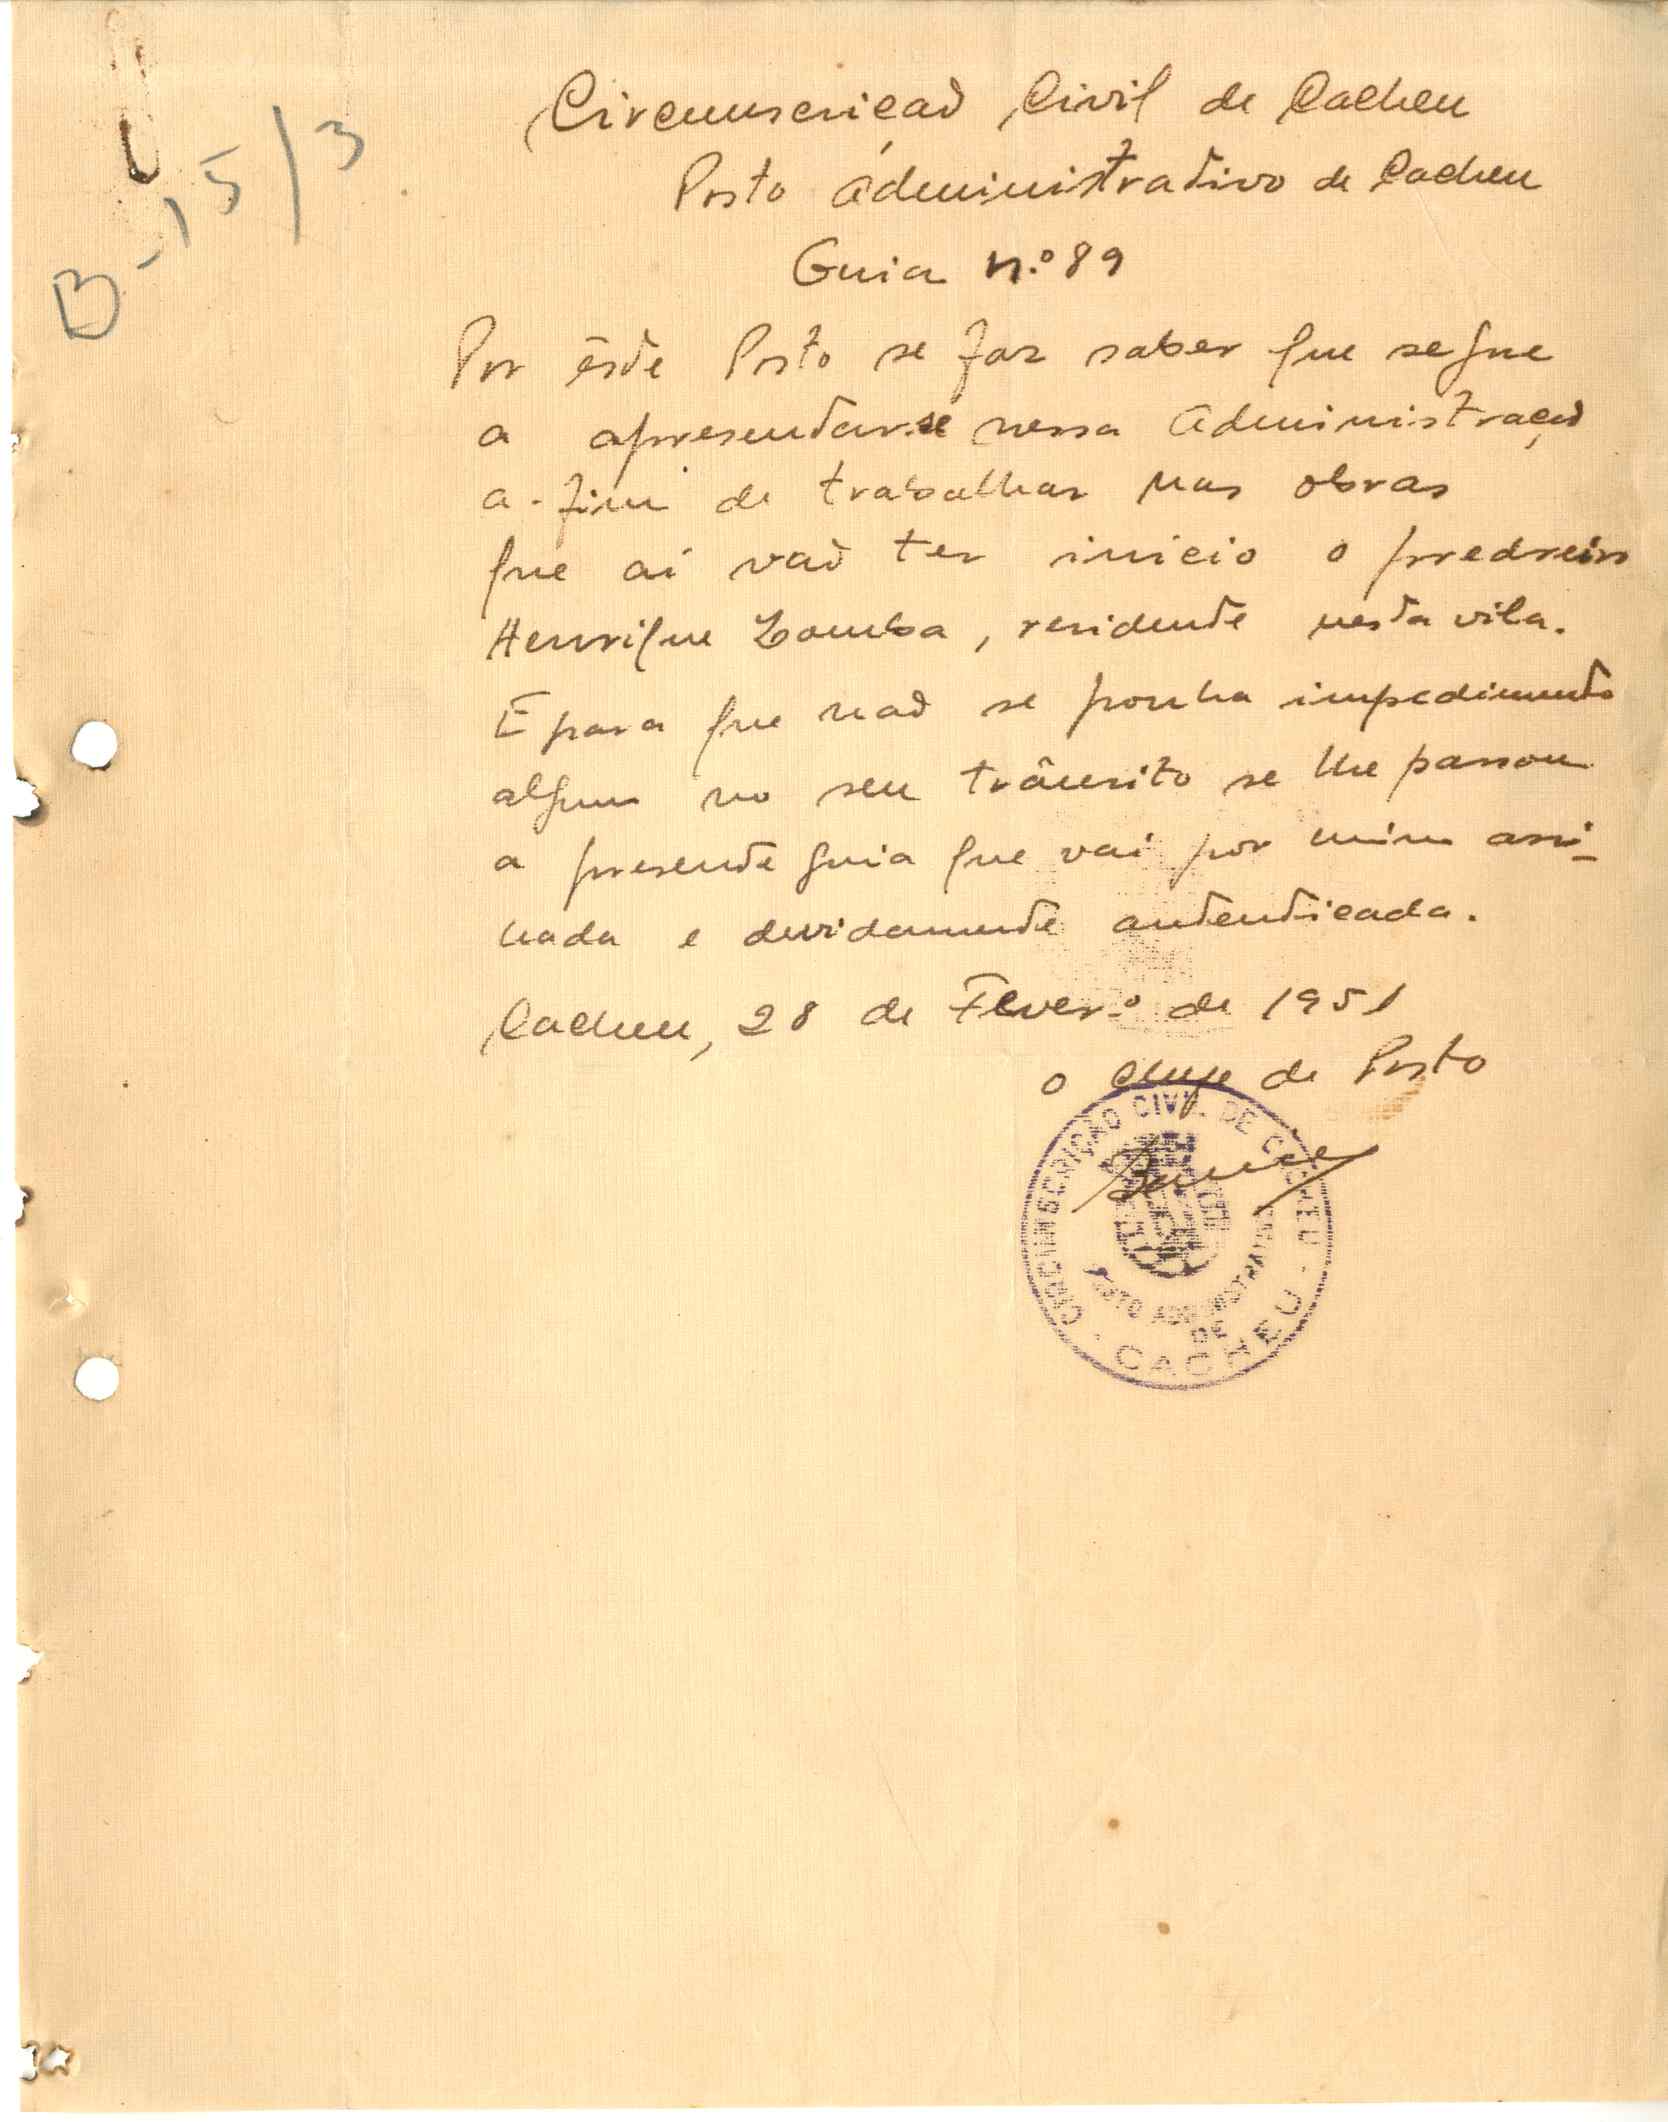 B-15/3
Circunscrição Civil de Cacheu
Posto Administrativo de Cacheu
Guia n.º 89
Por êste Posto se faz saber que segue
a apresentar-se nessa Administração
a-fim de trabalhar nas obras
que aí vão ter inicio o predreiro
Henrique Lomba, residente nesta vila.
E para que não se ponha impedimento
algum no seu trânsito se lhe passou
a presente guia que vai por mim assi-
nada e devidamente autenticada.
Cacheu, 28 de Fever.º de 1951
O Chefe de Posto
CIRCUNSCRIÇÃO CIVIL DE CACHEU
POSTO ADMINISTRATIVO
DE
CACHEU